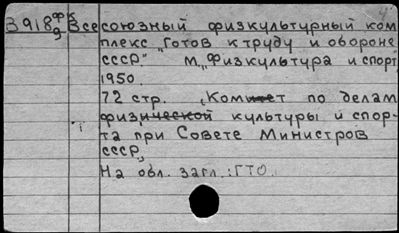 В918 фк Всесоюзный физкультурный ком
9 плекс „Готов к труду и обороне
СССР." М, „Физкультура и спорт
1950.
72 стр. „Комитет по делам
физической культуры и спор-
та при Совете Министров
СССР„
На обл. загл.: ГТО.